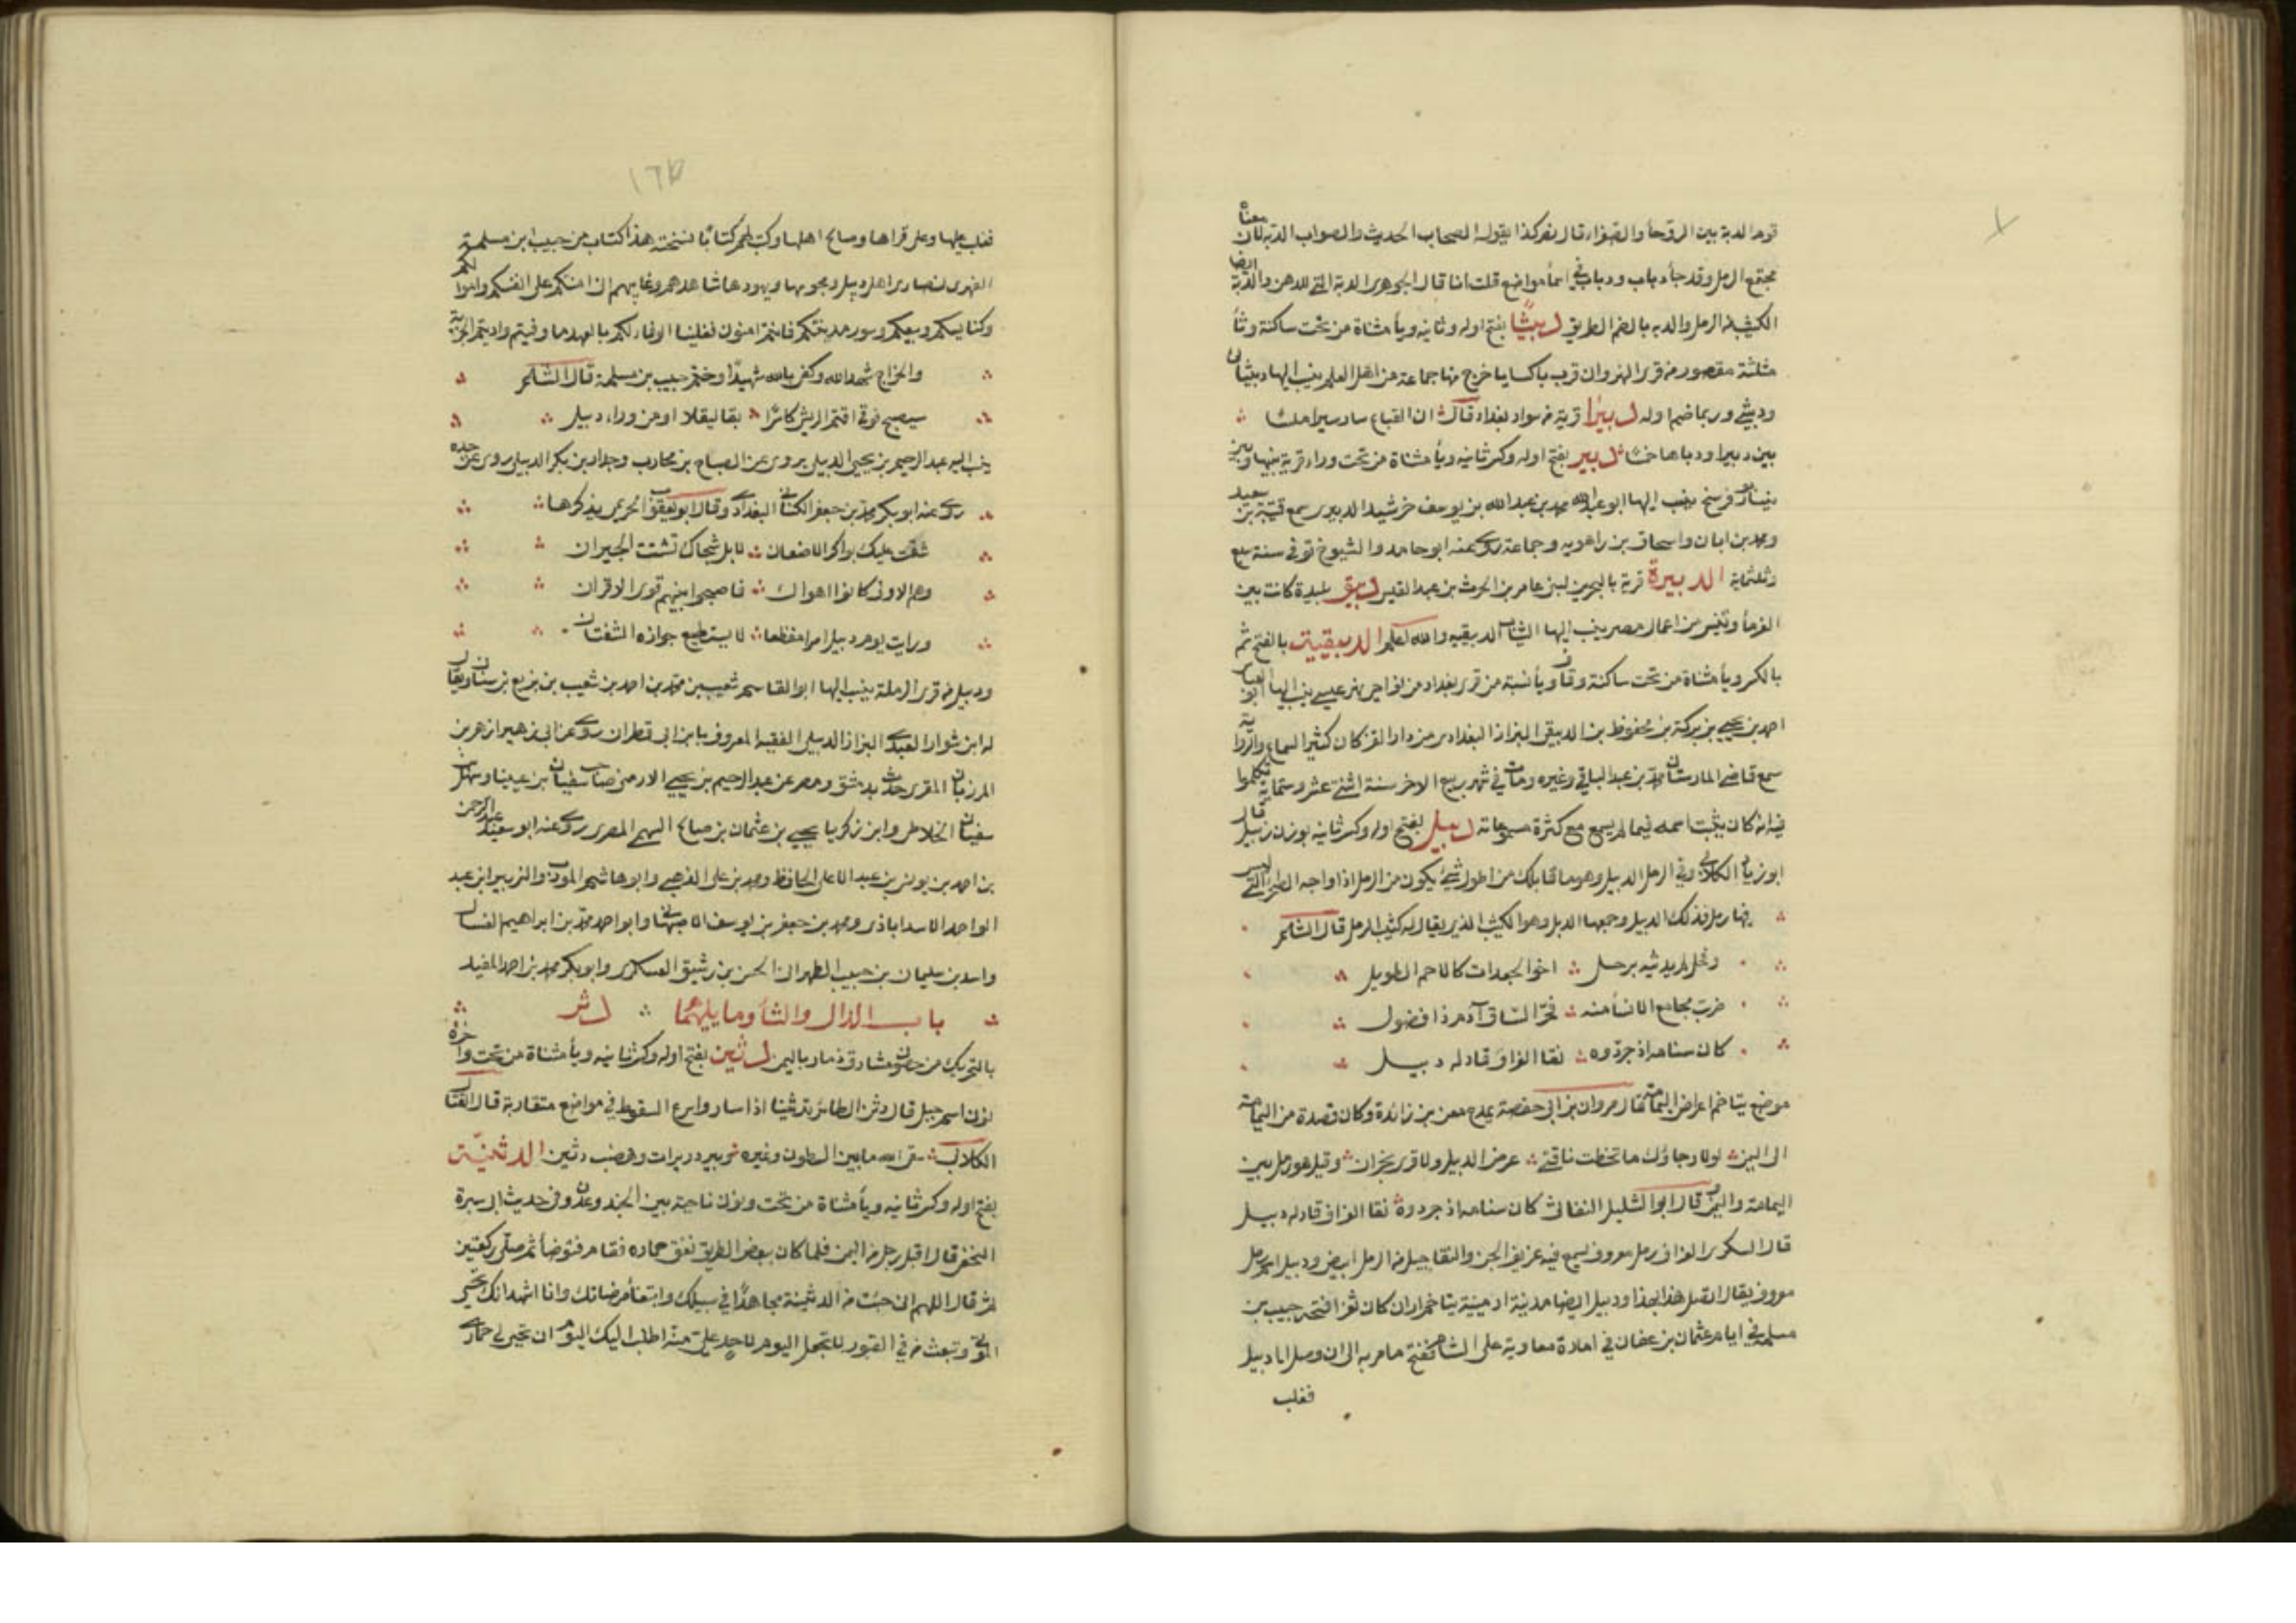 قوم الدبة بين الروحا والصفراء قال نصر كذا يقوله اصحاب الحديث والصواب الدبه لان معناه
مجتمع الرمل وقد جأ دباب ودباب في اسمأ مواضع قلت انا قال الجوهري الدبة التي للدهن والدبة ايضا
الكثيب من الرمل والدبه بالضم الطريق دبيثا بفتح اوله وثانيه ويأ مثناة من تحت ساكنة وثأ
مثلثة مقصور من قرى النهروان قرب باكسايا خرج منها جماعة من اهل العلم ينسب اليها دبيثاى
ودبيثي وربما ضم اوله دبيرا قرية من سواد بغداد قال ان القباع سار سيرا ملسا
بين دبيرا ودباها خمسا دبير بفتح اوله وكسر ثانيه ويأ مثناة من تحت وراء قرية بينها وبين
نيسابور فرسخ ينسب اليها ابو عبدالله محمد بن عبدالله بن يوسف خرشيد الدبيري سمع قتيبة بن سعيد
ومحمد بن ابان واسحاق بن راهويه وجماعة روى عنه ابو حامد والشيوخ توفي سنة سبع
وثلثماية الدبيرة قرية بالبحرين لبني عامر بن الحرث بن عبد القيس دبيق بليدة كانت بين
الفرمأ وتنيس من اعمال مصر ينسب اليها الثياب الدبيقيه والله اعلم الدبيقية بالفتح ثم
بالكسر ويأ مثناة من تحت ساكنة وقاف ويأ نسبة من قرى بغداد من نواحي نهر عيسى ينسب اليها ابو العباس
احمد بن يحيى بن بركة بن محفوظ بن الدبيقي البزاز البغدادي من دار القز كان كثير السماع والرواية
سمع قاضي المارستان محمد بن عبد الباقي وغيره ومات في شهر ربيع الاخر سنة اثنتي عشر وستماية تكلموا
فيه انه كان يثبت اسمه فيما لم يسمع مع كثرة مسموعاته دبيل بفتح اوله وكسر ثانيه بوزن زبيل قال
ابو زياد الكلابي وفي الرمل الدبيل وهو ما قابلك من اطول شي يكون من الرمل اذا واجه الطير التي ليس
فيها رمل فذلك الدبيل وجمعها الدبل وهو الكثيب الذي يقال له كثيب الرمل قال الشاعر
وفحل لم يديثه برحل اخو الجعدات كالاجم الطويل
ضربت مجامع الانسأ منه فخر الساق آدم ذا فضول
كان سنامه اذ جردوه نقا العزاف قاد له دبيل
موضع يتاخم اعراض اليمامة قال مروان بن ابي حفصة يمدح معن بن زائدة وكان قصده من اليمامة
الى اليمن لولا رجاؤك ما تخطت ناقتي عرض الدبيل ولا قرى نجران وقيل هو رمل بين
اليمامة واليمن قال ابو الشليل النفاثي كان سنامه اذ جردوه نقا العزاف قاد له دبيل
قال السكري العزاف رمل معروف يسمع فيه عزيف الجن والنقا جبل من الرمل ابيض ودبيل اسم رمل
معروف يقال اتصل هذا بهذا ودبيل ايضا مدينة ارمينية يتاخم اران كان ثغرا فتحه حبيب بن
مسلمة في ايام عثمان بن عفان في امارة معاوية على الشام ففتح ما مر به الى ان وصل الى دبيل
فغلب
فغلب عليها وعلى قراها وصالح اهلها وكتب لهم كتابا نسخته هذا كتاب من حبيب ابن مسلمة
الفهري لنصارى اهل دبيل ومجوسها ويهودها شاهدهم وغايبهم اني امنتكم على انفسكم واموالكم
وكنايسكم وبيعكم وسور مدينتكم فانتم امنون فعلينا الوفاء لكم بالعهد ما وفيتم واديتم الجزية
والخراج شهد الله وكفى بالله شهيدا وختم حبيب بن مسلمة قال الشاعر
سيصبح فوقي اقتم الريش كاسرا بقاليقلا او من وراء دبيل
ينسب اليه عبد الرحيم بن يحيى الدبيلي يروي عن الصباح بن محارب وجدار بن بكر الدبيلي روى عن جده
روى عنه ابو بكر محمد بن جعفر الكناني البغدادي وقال ابو يعقوب الخريمي يذكرها
شقت عليك بواكر الاضعان لا بل شجاك تشتت الجيران
وهم الاولى كانوا هواك فاصبحوا بينهم قوى الاقران
ورايت يوم دبيل امرا مفظعا لا يستطيع حواره الشفتان
ودبيل من قرى الرملة ينسب اليها ابو القاسم شعيب بن محمد بن احمد بن شعيب بن بزيع بن سنان ويقال
له ابن شوار العبدي البزاز الدبيلي الفقيه المعروف بابن ابي قطران روى عن ابي زهير ازهر بن
المرزبان المقرى حدث بدمشق ومصر عن عبد الرحيم بن يحيى الارمني صاحب سفيان بن عيينا وسهل بن
سفيان الخلاطي وابن زكريا يحيى بن عثمان بن صالح السهمي المصري روى عنه ابو سعيد عبد الرحمن
بن احمد بن يونس بن عبد الاعلى الحافظ ومحمد بن علي الذهبي وابو هاشم المودب والزبير ابن عبد
الواحد الاسداباذي ومحمد بن جعفر بن يوسف الاصبهاني وابو احمد محمد بن ابراهيم الغسال
واسد بن سليمان بن حبيب الطهراني الحسن بن رشيق العسكري وابو بكر محمد بن احمد المفيد
باب الدال والثأ وما يليهما دثر
بالتحريك من حصون مشارق ذمار باليمن دثين بفتح اوله وكسر ثانيه ويأ مثناة من تحت واخره
نون اسم جبل قال دثن الطائر تدثينا اذا سار واسرع السقوط في مواضع متقاربة قال القتال
الكلابي سقى الله ما بين الشطون وغيره وبير دريرات وهضب دثين الدثنيّة
بفتح اوله وكسر ثانيه ويأ مثناة من تحت ونون ناحية بين الجند وعدن وفي حديث ابي سبرة
النخعي قال اقبل رجل من اليمن فلما كان ببعض الطريق نفق حماره فقام فتوضأ ثم صلى ركعتين
ثم قال اللهم اني جئت من الدثينة مجاهدًا في سبيلك وابتغأ مرضاتك وانا اشهد انك تحيي
الموتى وتبعث من في القبور لا تجعل اليوم لاحد علي منة اطلب اليك اليوم ان تحيي لي حماري